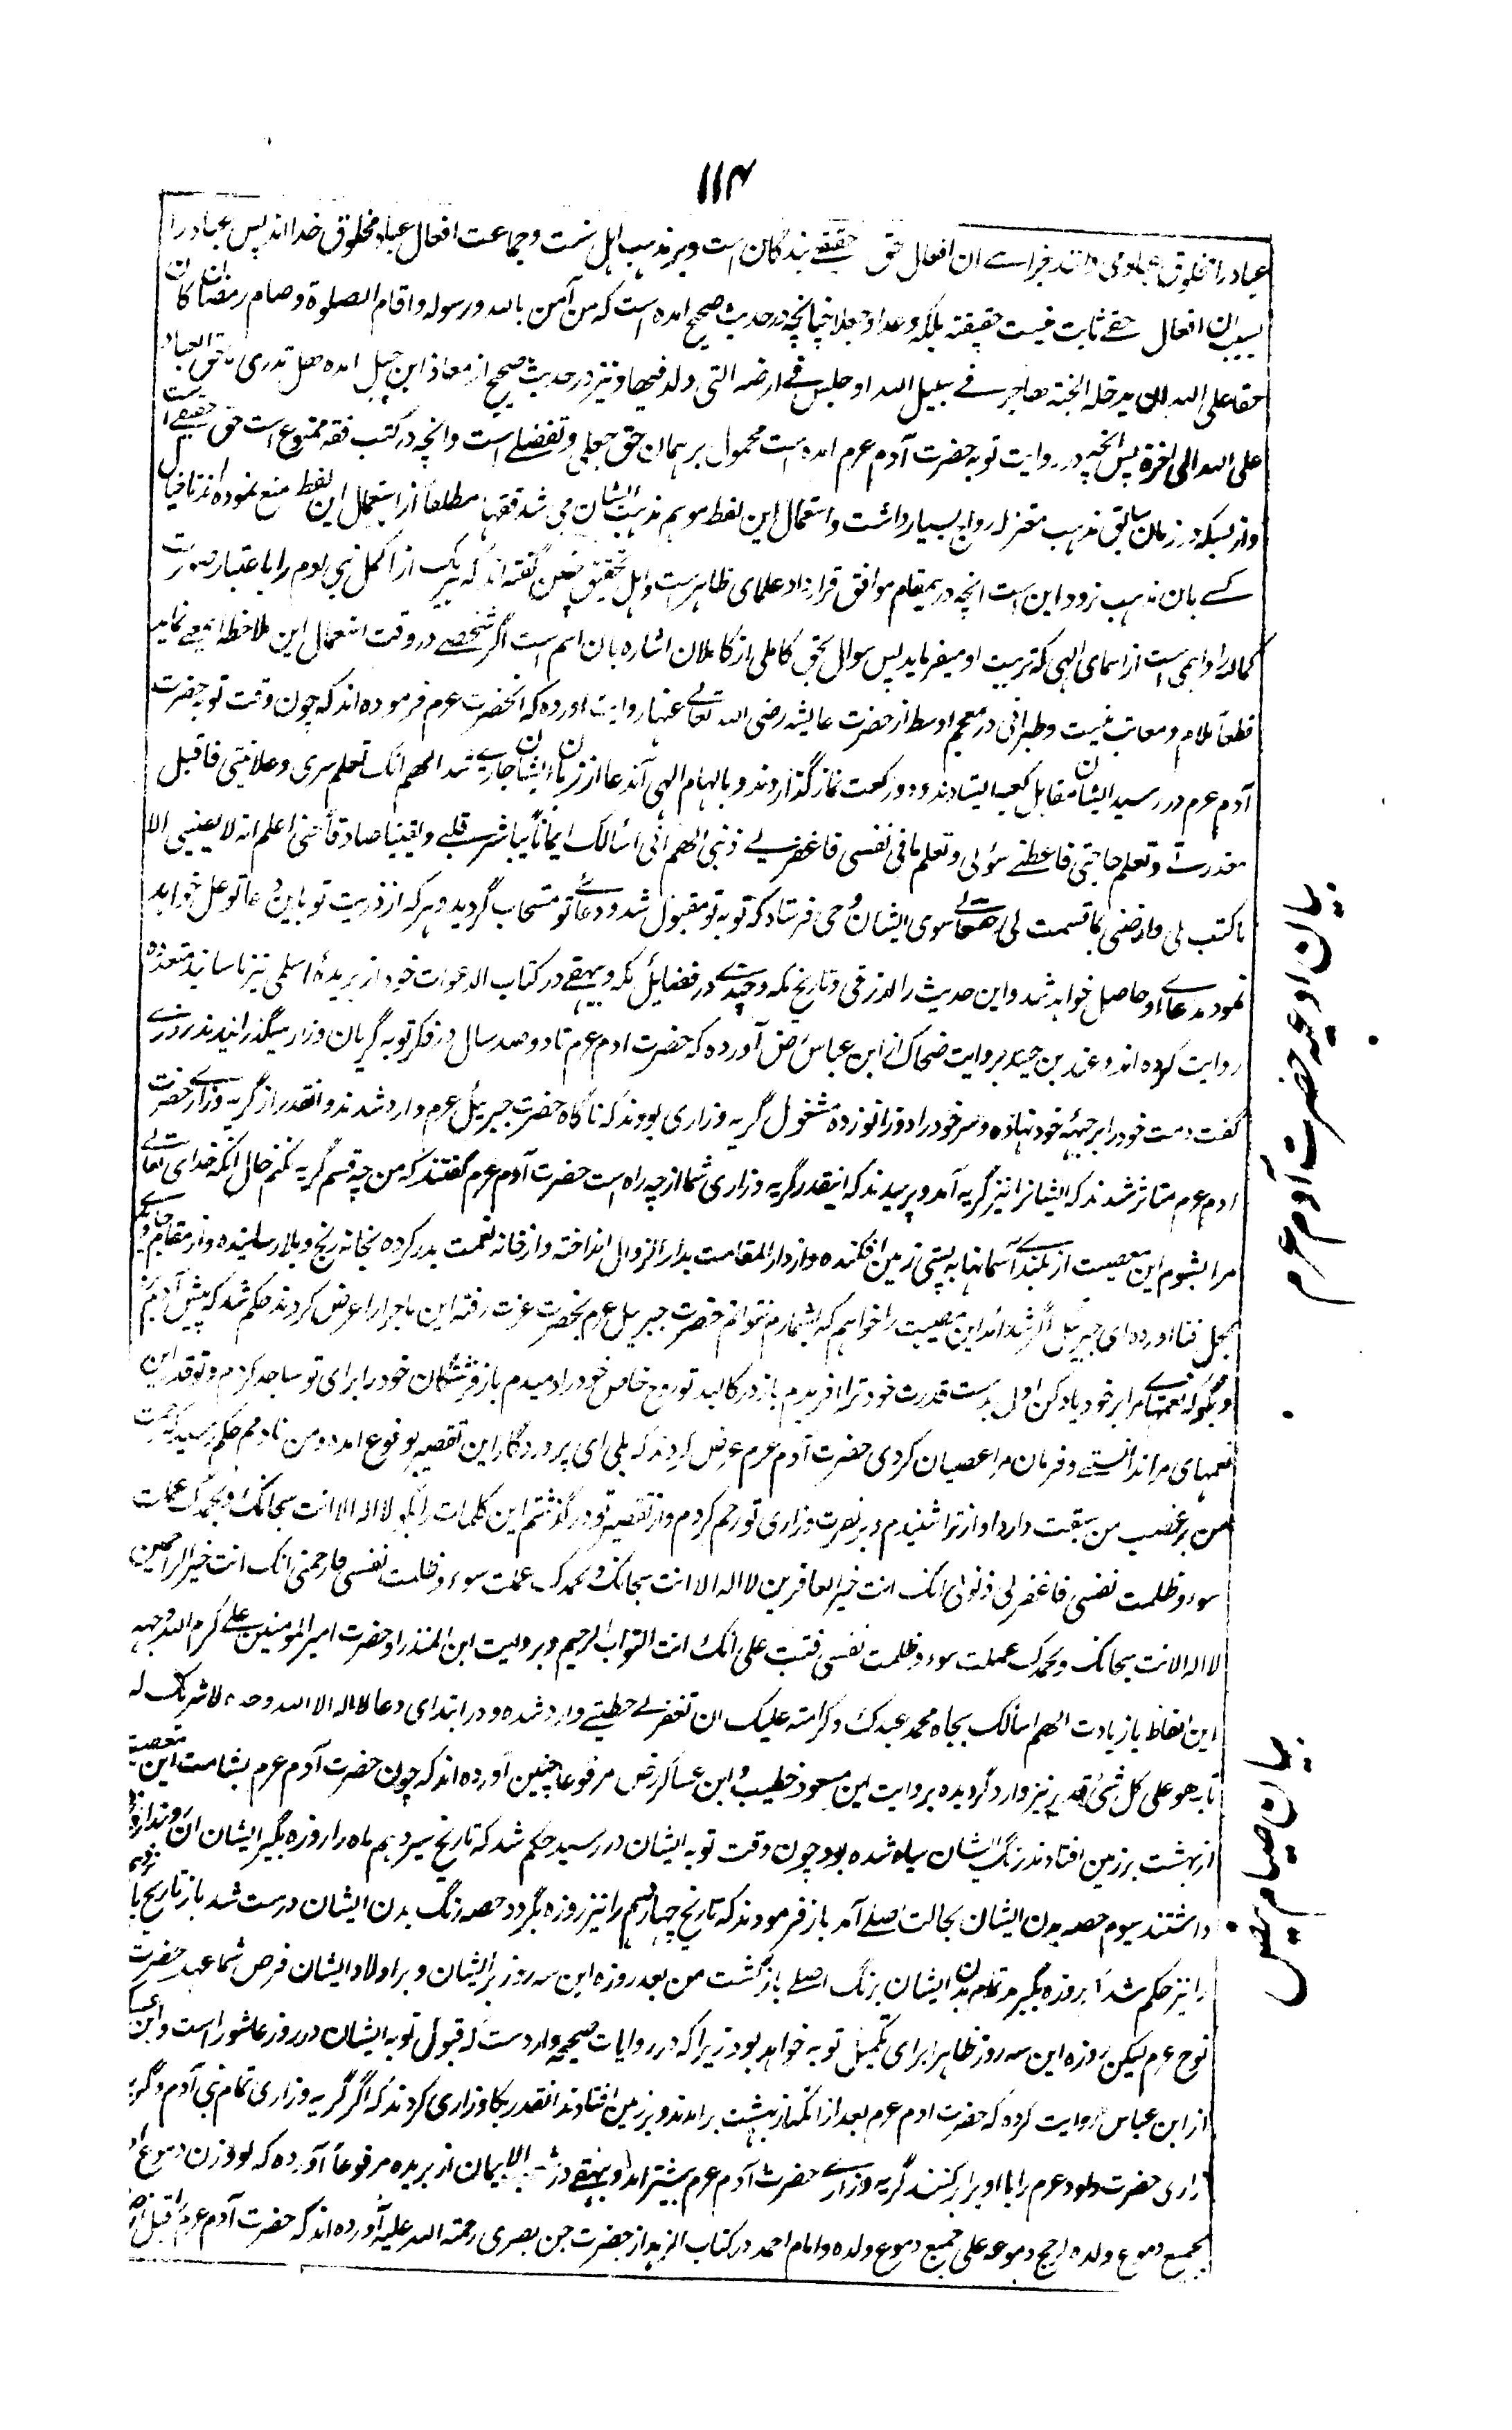 ۱۱۴
عباد را مخلوق عباد می دانند جزای ان افعال حق حقیقے بندگان است و بر مذهب اهل سنت و جماعت افعال عباد مخلوق خدا اند پس عباد را
بسبب ان افعال حقے ثابت نیست حقیقتہ بلکه وعدا و جعلا چنانچه در حدیث صحیح امده است که من آمن بالله ورسوله واقام الصلوة وصام رمضان کان
حقا علی الله ان یدخله الجنة هاجر فے سبیل الله او جلس فے ارضه التی ولد فیها و نیز در حدیث صحیح از معاذ ابن جبل امده هل تدری ما حق العباد
علی الله الی اخره پس انچه در روایت توبه حضرت آدم عرم امده است محمول بر همان حق جعلی و تفضلے است و انچه در کتب فقه ممنوع است حق حقیقے است
و از بسکه در زمان سابق مذهب معتزله رواج بسیار داشت و استعمال این لفظ موهم مذهب ایشان می شد فقها مطلقاً از استعمال این لفظ منع نموده اند تا خیال
کسے بان مذهب نرود این است انچه درینمقام موافق قرارداد علمای ظاهر است و اهل تحقیق چنین گفته اند که هر یک از اکمل بنی ادم را باعتبار صورت
کمالیه او اسمی است از اسمای الهی که تربیت او میفرماید پس سوال بحق کاملی از کاملان اشاره بان اسم است اگر شخصے در وقت استعمال این ملاحظه اینمعنے نماید
قطعاً ملام و معاتب نیست و طبرانی در معجم اوسط از حضرت عایشه رضی الله تعالے عنها روایت اورده که انحضرت عرم فرموده اند که چون وقت توبه حضرت
آدم عرم در رسید ایشان مقابل کعبه ایستادند و دو رکعت نماز گذاردند و بالهام الهی آن دعا از زبان ایشان جاری شد اللهم انک تعلم سری وعلانیتی فاقبل
معذرتی وتعلم حاجتی فاعطنے سؤلی وتعلم مافی نفسی فاغفرلے ذنبی اللهم انی اسألک ایماناً یباشر قلبے ویقیناً صادقاً حتی اعلم انه لا یصیبنی الا
ما کتب لی وارضنی بما قسمت لی حقتعالے سوی ایشان وحی فرستاد که توبه تو مقبول شد و دعائے تو مستجاب گردید و هر که از ذریت تو باین دعا توسل خواهد
نمود مدعائے او حاصل خواهد شد و این حدیث را ازرقی در تاریخ مکه و جندی در فضایل مکه و بیهقے در کتاب الدعوات خود از بریده اسلمی نیز باسانید متعدده
روایت کرده اند و عبد بن حمید بروایت ضحاک از ابن عباس رض آورده که حضرت ادم عرم تا دو صد سال در فکر توبه گریان و زار میگذرانیدند روزے
کفت دست خود را بر جبهه خود نهاده و سر خود را دو زانو زده مشغول گریه و زاری بودند که ناگاه حضرت جبرئیل عرم وارد شدند و انقدر از گریه و زارے حضرت
ادم عرم متاثر شدند که ایشانرا نیز گریه آمد و پرسیدند که اینقدر گریه و زاری شما از چه راه است حضرت آدم عرم گفتند که من چه قسم گریه نکنم حال انکه خدای تعالے
مرا بشوم این معصیت از بلندے آسمانها به پستی زمین افکنده و از دار المقامت بدار الزوال انداخته و از خانه نعمت بدر کرده بخانه رنج و بلا رسانیده و از مقام جاوید
بمحل فنا اورده ای جبرئیل اگر شداید این مصیبت را خواهم که بشمارم نتوانم حضرت جبریل عرم بحضرت عزت رفته این ماجرا را عرض کردند حکم شد که پیش آدم برو
و بگو که نعمتهائے مرا بر خود یاد کن اول بدست قدرت خود ترا افریدم باز در کالبد تو روح خاص خود را دمیدم باز فرشتگان خود را برای تو ساجد کردم و تو قدر این
نعمتهای مرا ندانستے و فرمان مرا عصیان کردی حضرت آدم عرم عرض کردند که بلی ای پروردگار این تقصیر بوقوع امده و من نادمم حکم رسید که رحمت
من بر غضب من سبقت دارد اواز ترا شنیدم و بر تضرع و زاری تو رحم کردم و از تقصیر تو در گذشتم این کلمات را بگو لا اله الا انت سبحانک وبحمدک عملت
سوء وظلمت نفسی فاغفر لی ذنوبی انک انت خیر الغافرین لا اله الا انت سبحانک وبحمدک عملت سوء وظلمت نفسی فارحمنی انک انت خیر الراحمین
لا اله الا انت سبحانک وبحمدک عملت سوء وظلمت نفسی فتب علی انک انت التواب الرحیم و بروایت ابن المنذر از حضرت امیر المومنین علے کرم الله وجهه
این الفاظ بازیادت اللهم اسألک بجاه محمد عبدک وکرامته علیک ان تغفرلے خطیئتے وارد شده و در ابتدای دعا لا اله الا الله وحده لا شریک له
تا وهو علی کل شئ قدیر نیز وارد گردیده بروایت ابن مسعود خطیب و ابن عساکر رض مرفوعا چنین آورده اند که چون حضرت آدم عرم بشامت این معصیت
از بهشت بر زمین افتادند رنگ ایشان سیاه شده بود چون وقت توبه ایشان در رسید حکم شد که تاریخ سیزدهم ماه را روزه بگیر ایشان ان روز را روزه
داشتند سیوم حصه بدن ایشان بحالت اصلے آمد باز فرمودند که تاریخ چهاردهم را نیز روزه بگیر دو حصه رنگ بدن ایشان درست شد باز تاریخ پانزدهم
را نیز حکم شد که روزه بگیر تمام بدن ایشان برنگ اصلے باز گشت من بعد روزه این سه روز بر ایشان و بر اولاد ایشان فرض شد تا عهد حضرت
نوح عرم لیکن روزه این سه روز ظاهرا برای تکمیل توبه خواهد بود زیرا که در روایات صحیحه وارد ست که قبول توبه ایشان در روز عاشورا است و ابن عساکر
از ابن عباس روایت کرده که حضرت ادم عرم بعد از انکه از بهشت بر امدند و بر زمین افتادند انقدر بکا و زاری کردند که اگر گریه و زاری تمام بنی آدم و گریه
زاری حضرت داود عرم را با او برابر کنند گریه و زارے حضرت آدم عرم بیشتر اید و بیهقے در شعب الایمان از بریده مرفوعاً آورده که لو وزن دموع ادم
بجمیع دموع ولده لرجح دموعه علی جمیع دموع ولده و امام احمد در کتاب الزهد از حضرت حسن بصری رحمة الله علیه آورده اند که حضرت آدم عرم قبل از
بیان ادعیه حضرت آدم عرم
بیان صیام بیض